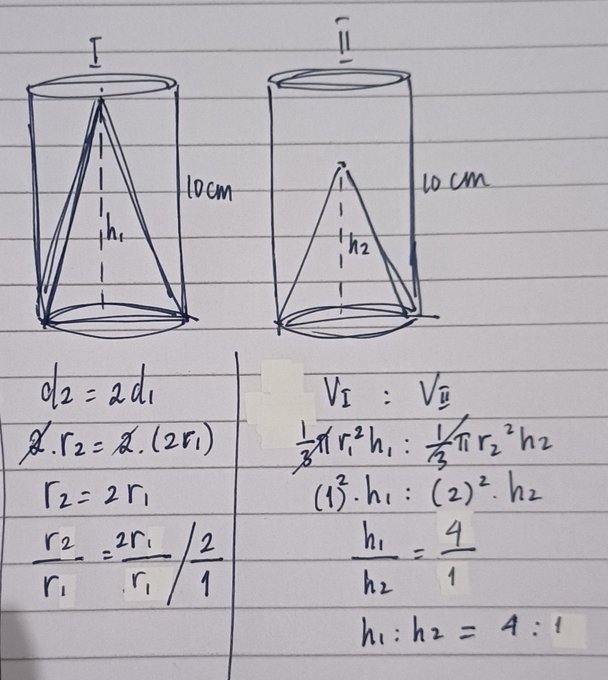 I
II
10 cm
10 cm
h₁
h₂
d₂ = 2d₁
2.r₂ = 2.(2r₁)
r₂ = 2r₁
r₂/r₁ = 2r₁/r₁ / 2/1
V_I : V_II
1/3 π r₁² h₁ : 1/3 π r₂² h₂
(1)². h₁ : (2)². h₂
h₁/h₂ = 4/1
h₁ : h₂ = 4 : 1